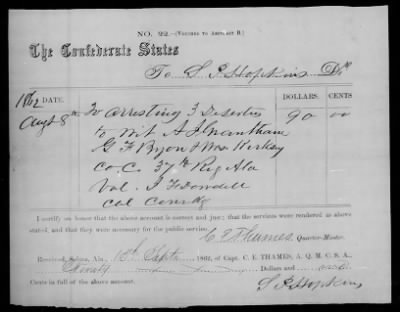 No. 22.—(Voucher to Abstract B.)
The Confederate States
To S P Hopkins Dr.
1862 DATE. DOLLARS. CENTS
Augt 8th To arresting 3 Deserters 90 00
to wit A J Grantham
G F Bryon & Wm Kerksy
Co C. 37th Reg Ala
Vol. J F Dowdell
Col Comdg
I certify on honor that the above account is correct and just; that the services were rendered as above
stated, and that they were necessary for the public service.
C E Thames, Quarter-Master.
Received, Selma, Ala., 10th Septr 1862, of Capt. C. E THAMES, A. Q. M. C. S. A.,
Ninety Dollars and
Cents in full of the above account.
S P Hopkins